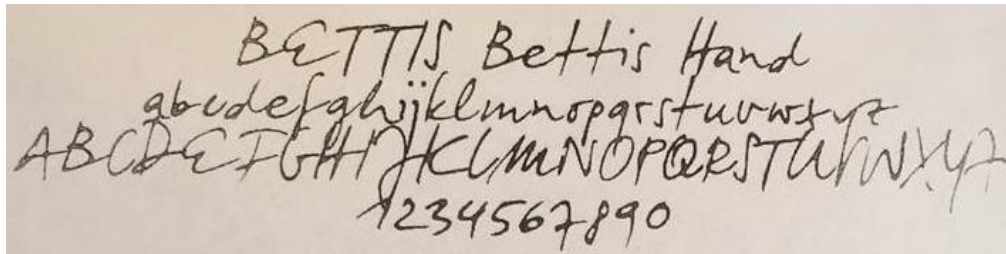 BETTIS Bettis Hand
abcdefghijklmnopqrstuvwxyz
ABCDEFGHIJKLMNOPQRSTUVWXYZ
1234567890